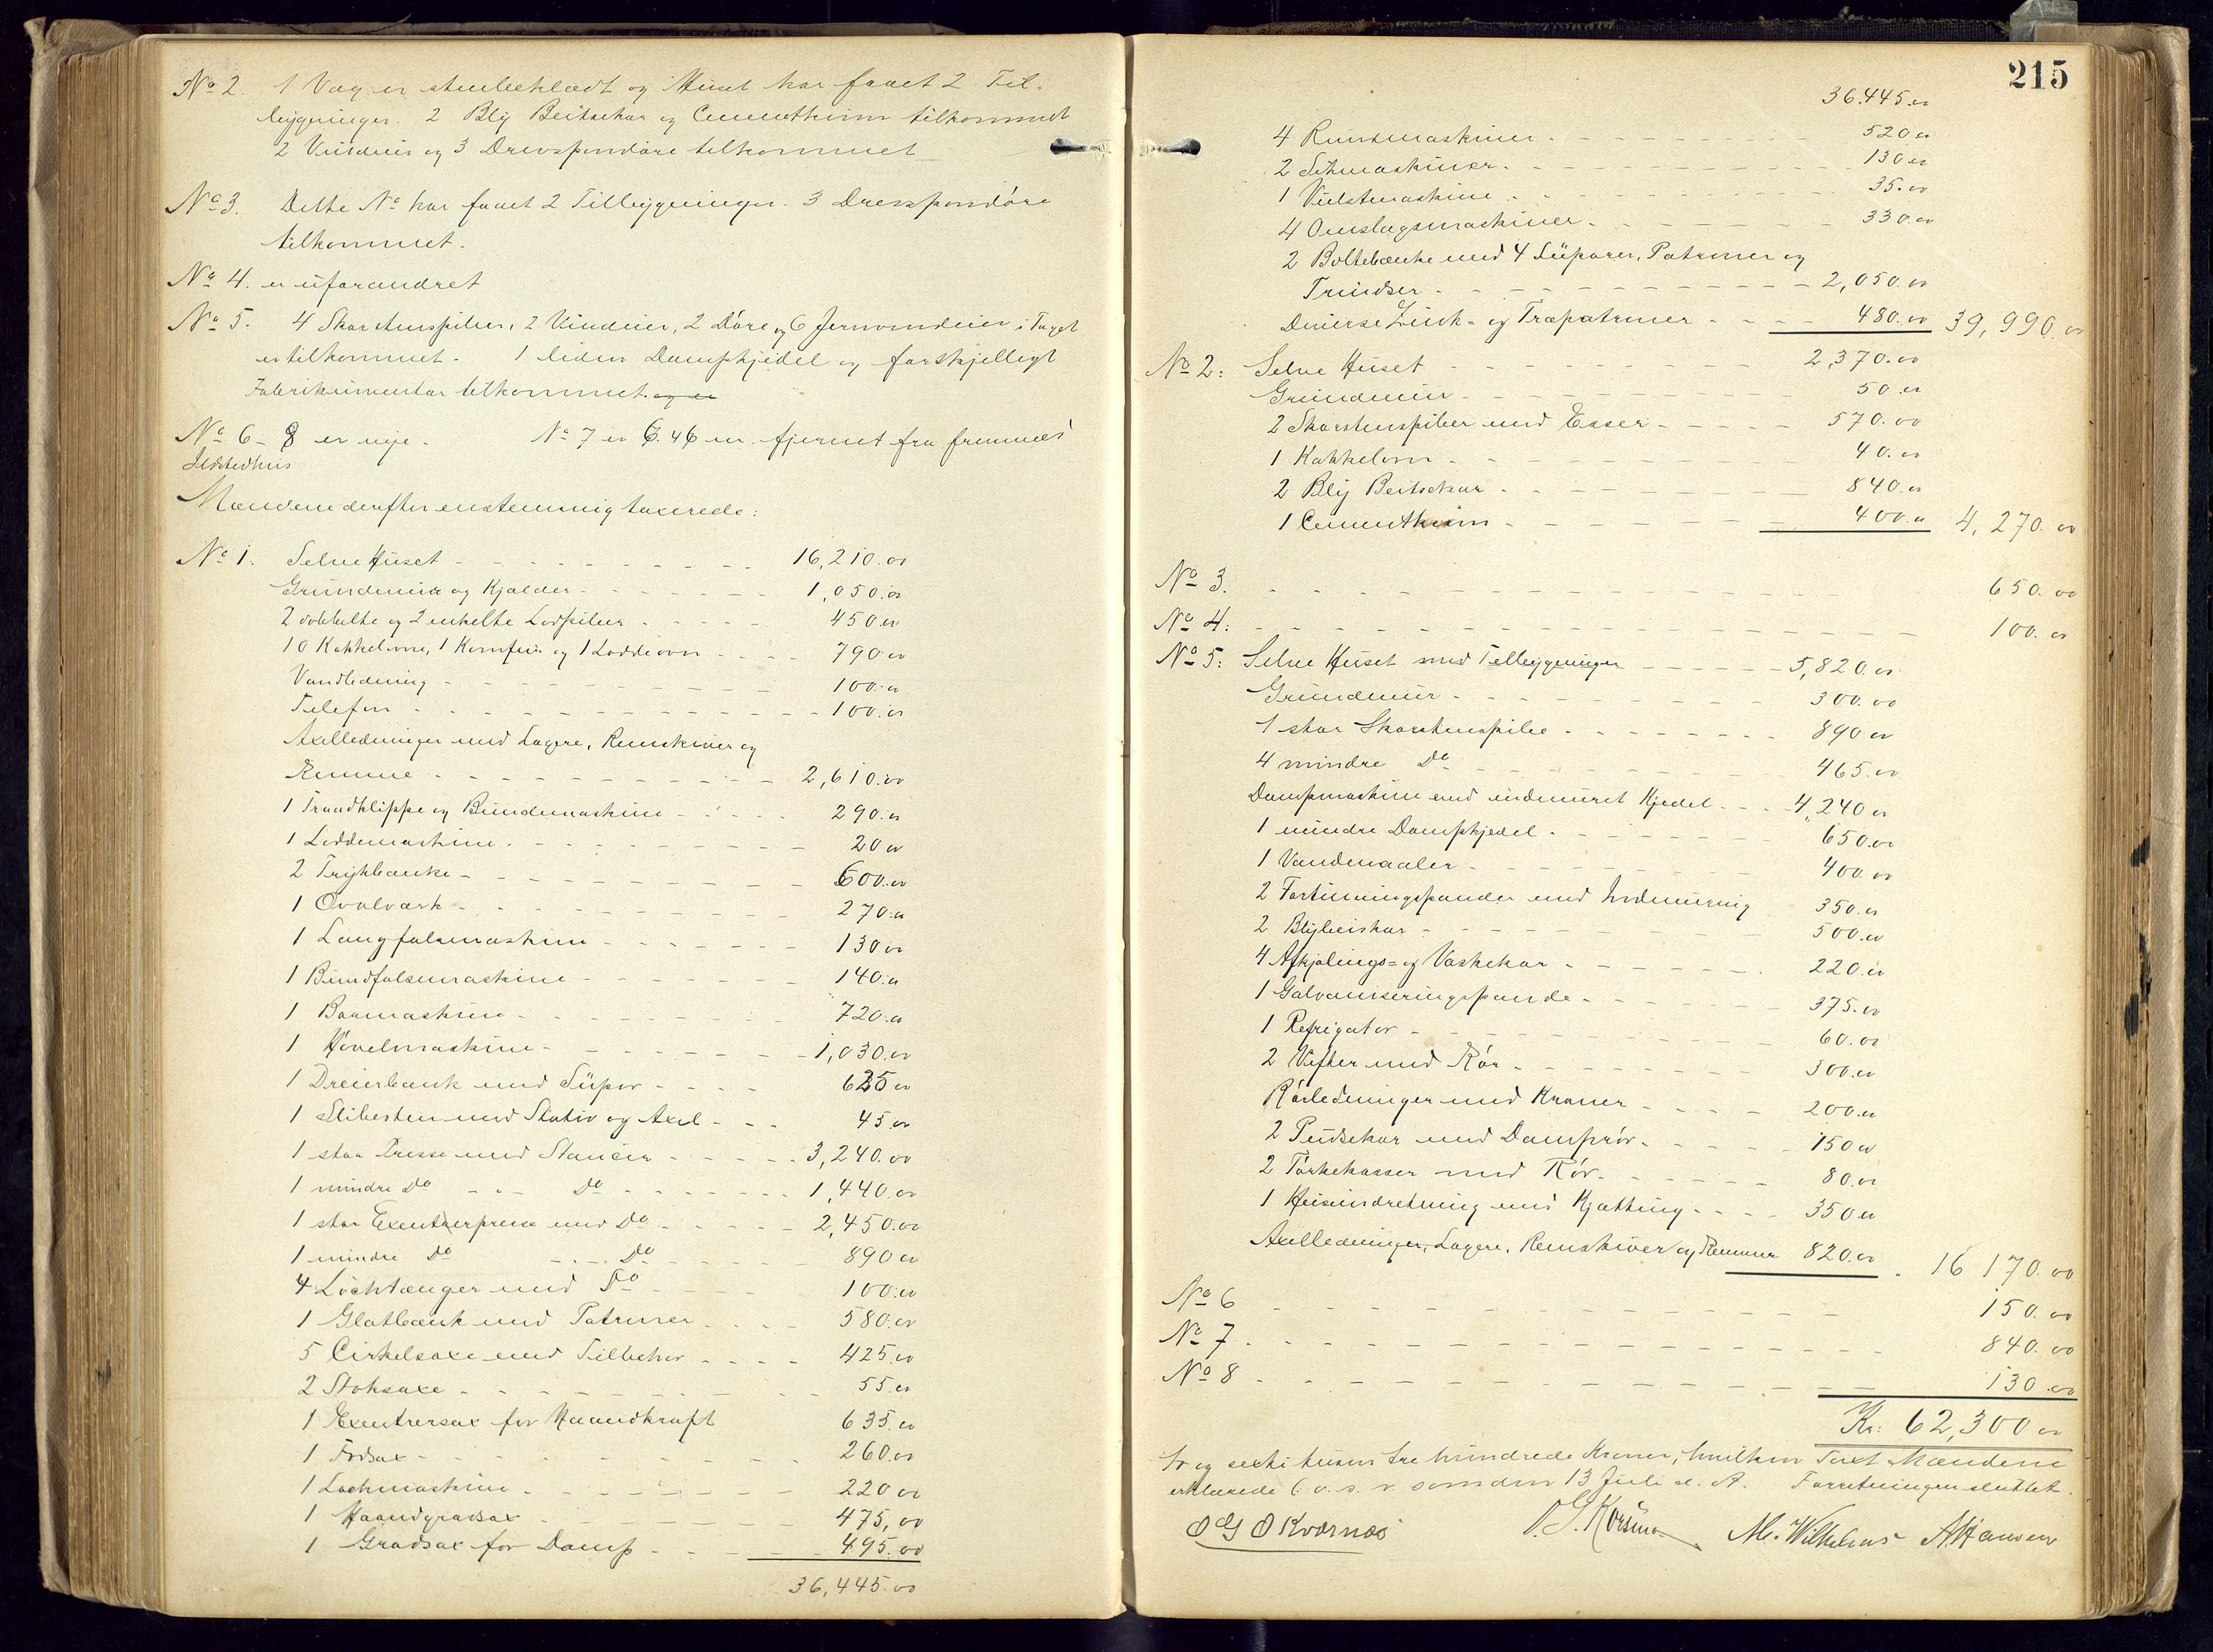 No 2. 1 Væg er stenbeklædt og Huset har faaet 2 Til-
bygninger. 2 Bly Beitsekar og Cementkum tilkommet
2 Vinduer og 3 Drevspondøre tilkommet
No 3. Dette No har faaet 2 Tilbygninger. 3 Drevspondøre
tilkommet.
No 4. er uforandret
No 5. 4 Skorstenspiber, 2 Vinduer, 2 Døre og 6 Jernvinduer i Taget
er tilkommet. 1 liden Dampkjedel og forskjelligt
Fabrikinventar tilkommet. og er
No 6 - 8 er nye. No 7 er 6.46 m. fjernet fra fremmed
Ildstedhus
Mændene derefter enstemmig taxerede:
No 1. Selve Huset 16,210.00
Grundmur og Kjælder 1,050.00
2 dobbelte og 2 enkelte Lodpiber 450.00
10 Kakkelovne, 1 Komfur og 1 Loddeovn 790.00
Vandledning 100.00
Telefon 100.00
Axelledninger med Lagere, Remskiver og
Remme 2,610.00
1 Traadklippe og Bundemaskine 290.00
1 Loddemaskine 20.00
2 Trykbænke 600.00
1 Ovalværk 270.00
1 Langfalsmaskine 130.00
1 Bundfalsemaskine 140.00
1 Boremaskine 720.00
1 Høvelmaskine 1,030.00
1 Dreierbænk med Süpor 625.00
1 Slibesten med Stativ og Axel 45.00
1 stor Presse med Stancer 3,240.00
1 mindre Do Do 1,440.00
1 stor Exenterpresse med Do 2,450.00
1 mindre Do Do 890.00
4 Lochtænger med Do 100.00
1 Glatbænk med Patroner 580.00
5 Cirkelsaxe med Tilbehør 425.00
2 Stoksaxe 55.00
1 Exentersax for Haandkraft 635.00
1 Fodsax 260.00
1 Lochmaskine 220.00
1 Haandgradsax 475,00
1 Gradsax for Damp 495.00
36,445.00
215
36,445.00
4 Rundmaskiner 520.00
2 Sikmaskiner 130.00
1 Vulstmaskine 35.00
4 Omslagsmaskiner 330.00
2 Boltebænke med 4 Süporer, Patroner og
Trindser 2,050.00
Diverse Zink- og Træpatroner 480.00 39,990.00
No 2: Selve Huset 2,370.00
Grundmur 50.00
2 Skorstenspiber med Esser 570.00
1 Kakkelovn 40.00
2 Bly Beitsekar 840.00
1 Cementkum 400.00 4,270.00
No 3. 650.00
No 4: 100.00
No 5: Selve Huset med Tilbygninger 5,820.00
Grundmur 300.00
1 stor Skorstenspibe 890.00
4 mindre Do 465.00
Dampmaskine med indmuret Kjedel 4,240.00
1 mindre Dampkjedel 650.00
1 Vandmaaler 400.00
2 Fortinningspander med Indmuring 350.00
2 Blybeiskar 500.00
4 Afkjølings- og Vaskekar 220.00
1 Galvaniseringspande 375.00
1 Refrigator 60.00
2 Vifter med Rør 300.00
Rørledninger med Kraner 200.00
2 Pudsekar med Damprør 150.00
2 Tørkekasser med Rør 80.00
1 Heiseindretning med Kjætting 350.00
Axelledninger, Lagere, Remskiver og Remmer 820.00 16 170.00
No 6 150.00
No 7 840.00
No 8 130.00
Kr: 62,300.00
To og sexti tusen tre hundrede Kroner, hvilken Taxt Mændene
erklærede 6. o. s. v. som den 13 Juli d. A. Forretningen sluttet.
O G O Kværnæs M. Wilhelms A. Hansen